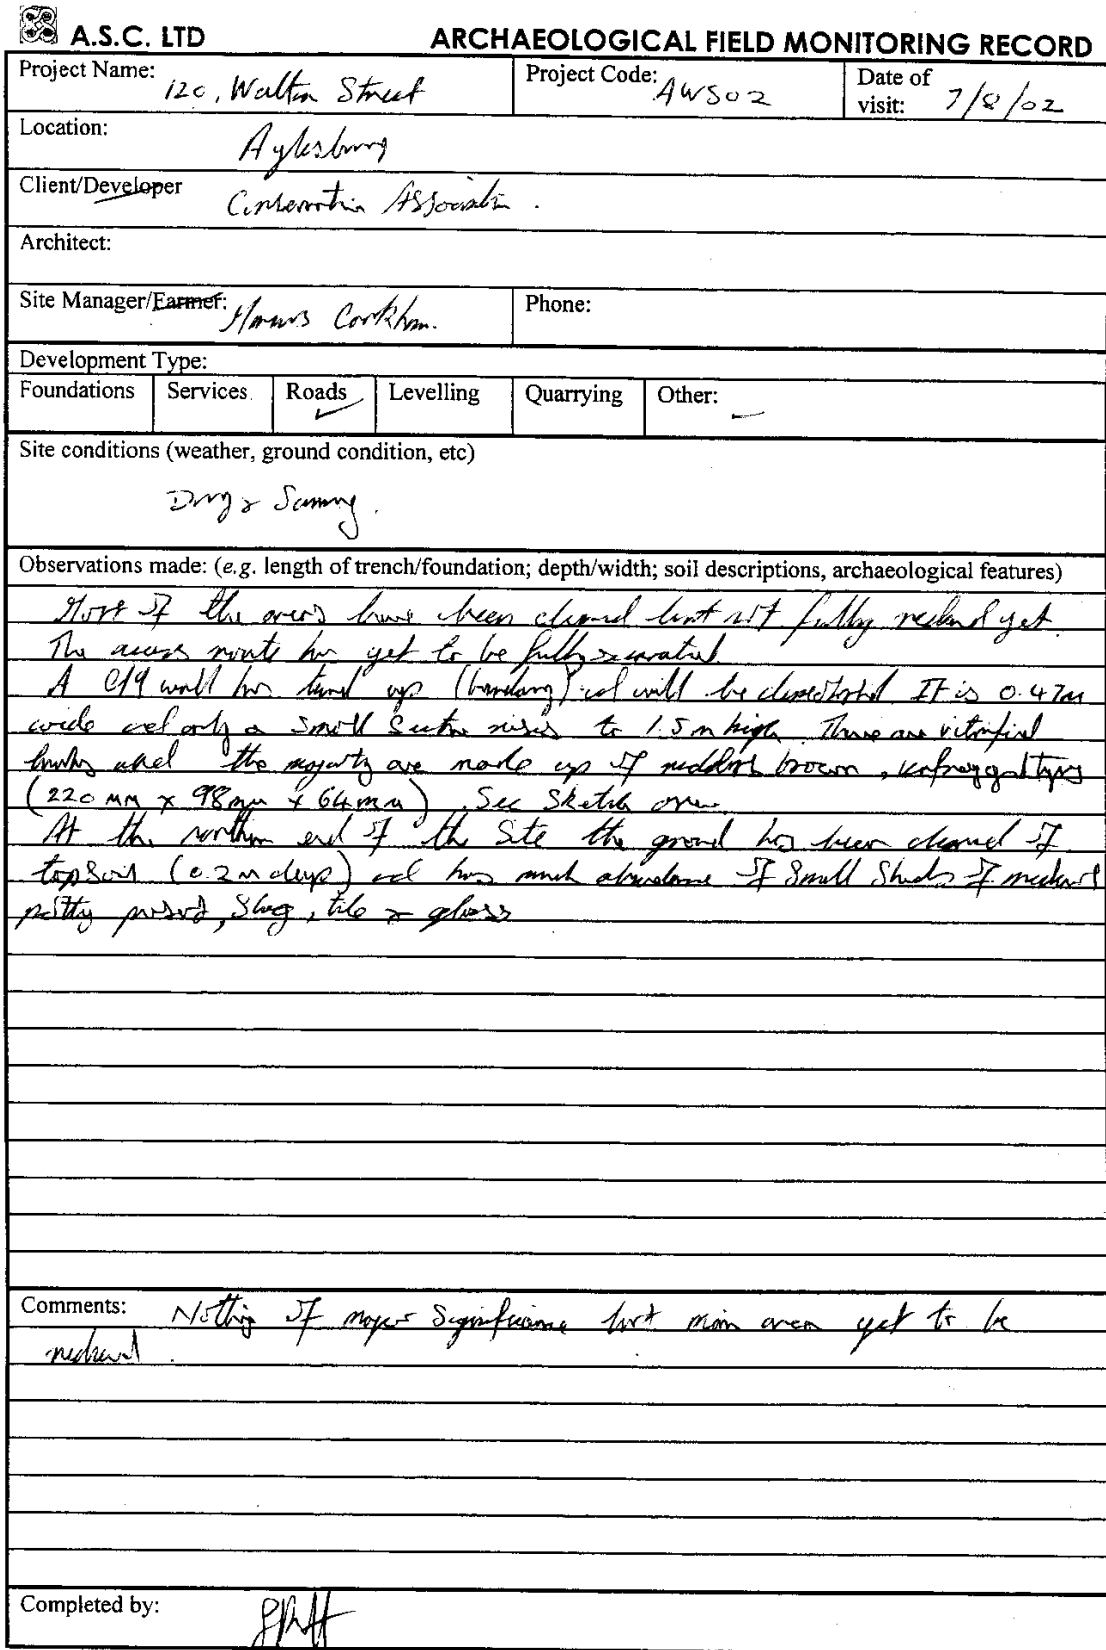 A.S.C. LTD ARCHAEOLOGICAL FIELD MONITORING RECORD
Project Name: 120, Walton Street Project Code: AWS02 Date of visit: 7/8/02
Location: Aylesbury
Client/Developer Conservative Association.
Architect:
Site Manager/Farmer: Cookham. Phone:
Development Type:
Foundations Services Roads ✓ Levelling Quarrying Other: —
Site conditions (weather, ground condition, etc)
Dry & Sunny.
Observations made: (e.g. length of trench/foundation; depth/width; soil descriptions, archaeological features)
Most of the areas have been cleared but not fully reduced yet.
The access route has yet to be fully excavated.
A C19 wall has turned up (boundary) and will be demolished It is 0.47m
wide and only a small section rises to 1.5m high. There are vitrified
bricks and the majority are made up of reddish brown, unfrogged types
(220mm x 98mm x 64mm). See sketch over
At the northern end of the site the ground has been cleaned of
topsoil (0.2m deep) and has much abundance of small sherds of
pottery, slag, tile & glass
Comments: Nothing of major significance but main area yet to be
reduced.
Completed by: